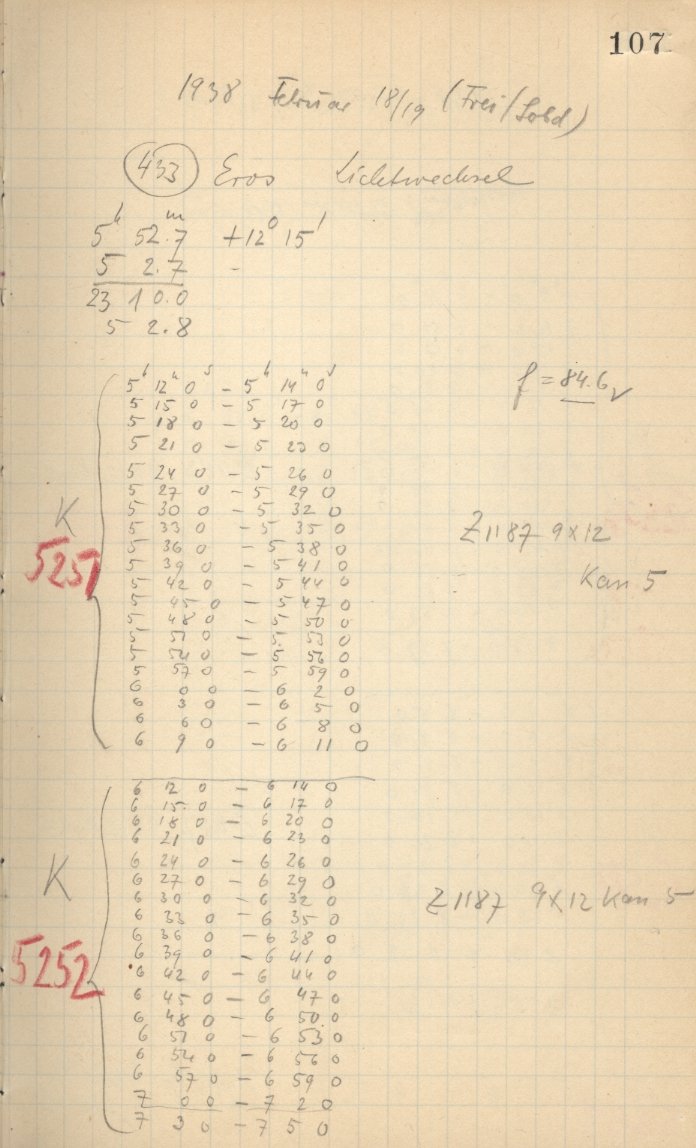 107
1938 Februar 18/19 (Frei/Sobd)
433 Eros Lichtwechsel
5h 52.7m +12° 15'
5 2.7 -
23 10.0
5 2.8
5h 12m 0s - 5h 14m 0s
f = 84.6
5 15 0 - 5 17 0
5 18 0 - 5 20 0
5 21 0 - 5 23 0
5 24 0 - 5 26 0
5 27 0 - 5 29 0
5 30 0 - 5 32 0
5 33 0 - 5 35 0
5 36 0 - 5 38 0
5 39 0 - 5 41 0
5 42 0 - 5 44 0
5 45 0 - 5 47 0
5 48 0 - 5 50 0
5 51 0 - 5 53 0
5 54 0 - 5 56 0
5 57 0 - 5 59 0
6 0 0 - 6 2 0
6 3 0 - 6 5 0
6 6 0 - 6 8 0
6 9 0 - 6 11 0
K
5251
Z1187 9x12
Kan 5
6 12 0 - 6 14 0
6 15 0 - 6 17 0
6 18 0 - 6 20 0
6 21 0 - 6 23 0
6 24 0 - 6 26 0
6 27 0 - 6 29 0
6 30 0 - 6 32 0
6 33 0 - 6 35 0
6 36 0 - 6 38 0
6 39 0 - 6 41 0
6 42 0 - 6 44 0
6 45 0 - 6 47 0
6 48 0 - 6 50 0
6 51 0 - 6 53 0
6 54 0 - 6 56 0
6 57 0 - 6 59 0
7 0 0 - 7 2 0
7 3 0 - 7 5 0
K
5252
Z1187 9x12 Kan 5